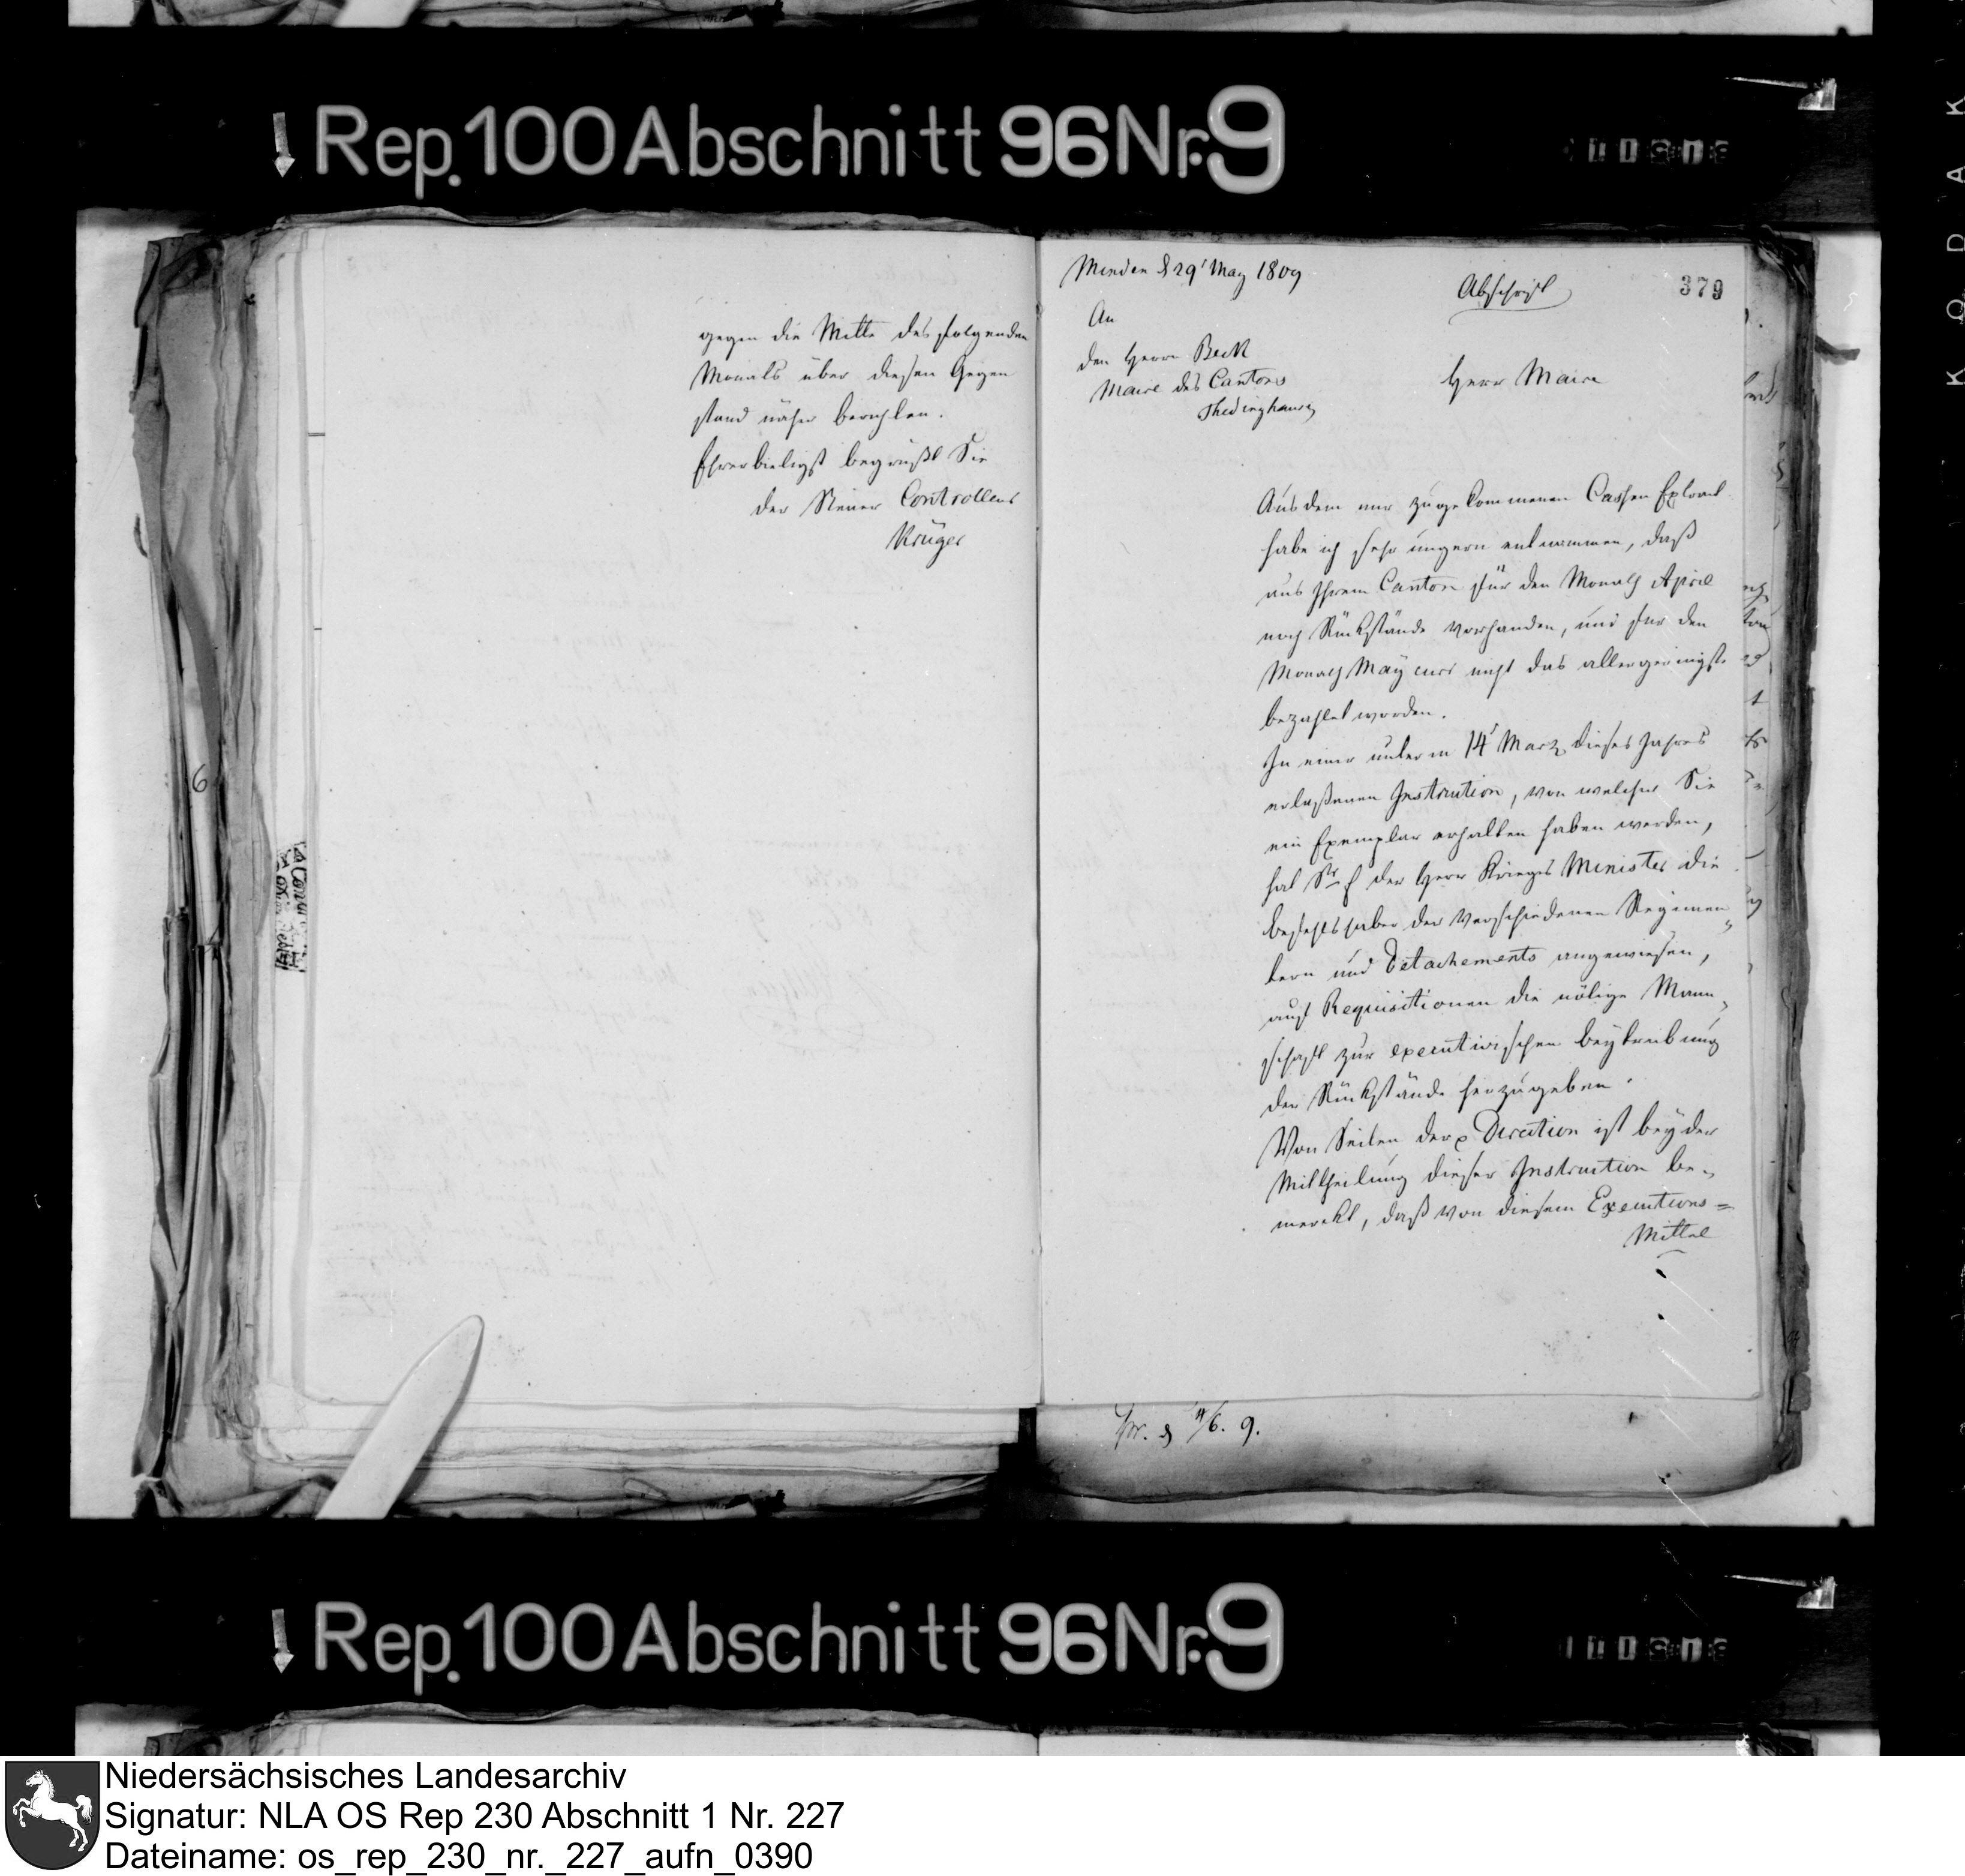 Rep. 100 Abschnitt 96 Nr. 9
gegen die Mitte des folgenden
Monats über diesen Gegen
stand näher berichten.
Ehrerbietigst begrüßt Sie
der Steuer Controlleur
Krüger
Minden d 29' May 1809
379
Abschrift
An
den Herrn Beck
Maire des Cantons
Thedinghausen
Herr Maire
Aus dem mir zugekommenen Cassen Extract
habe ich sehr ungern entnommen, daß
aus Ihrem Canton für den Monath April
noch Rückstände vorhanden, und für den
Monath May curr nicht das allergeringste
bezahlet worden.
In einer unterm 14' Marz dieses Jahres
erlaßenen Instruction, von welcher Sie
ein Exemplar erhalten haben werden,
hat Sr E der Herr Krieges Minister die
Befehlshaber der verschiedenen Regimen„
tern und Detachements angewiesen,
auf Requisitionen die nötige Mann„
schaft zur executivischen Beytreibung
der Rückstände herzugeben.
Von Seiten der Direction ist bey der
Mittheilung dieser Instruction be„
merckt, daß von diesem Executions=
Mittel
pr. d 4/6. 9.
6
KODAK
Rep. 100 Abschnitt 96 Nr. 9
Niedersächsisches Landesarchiv
Signatur: NLA OS Rep 230 Abschnitt 1 Nr. 227
Dateiname: os_rep_230_nr._227_aufn_0390